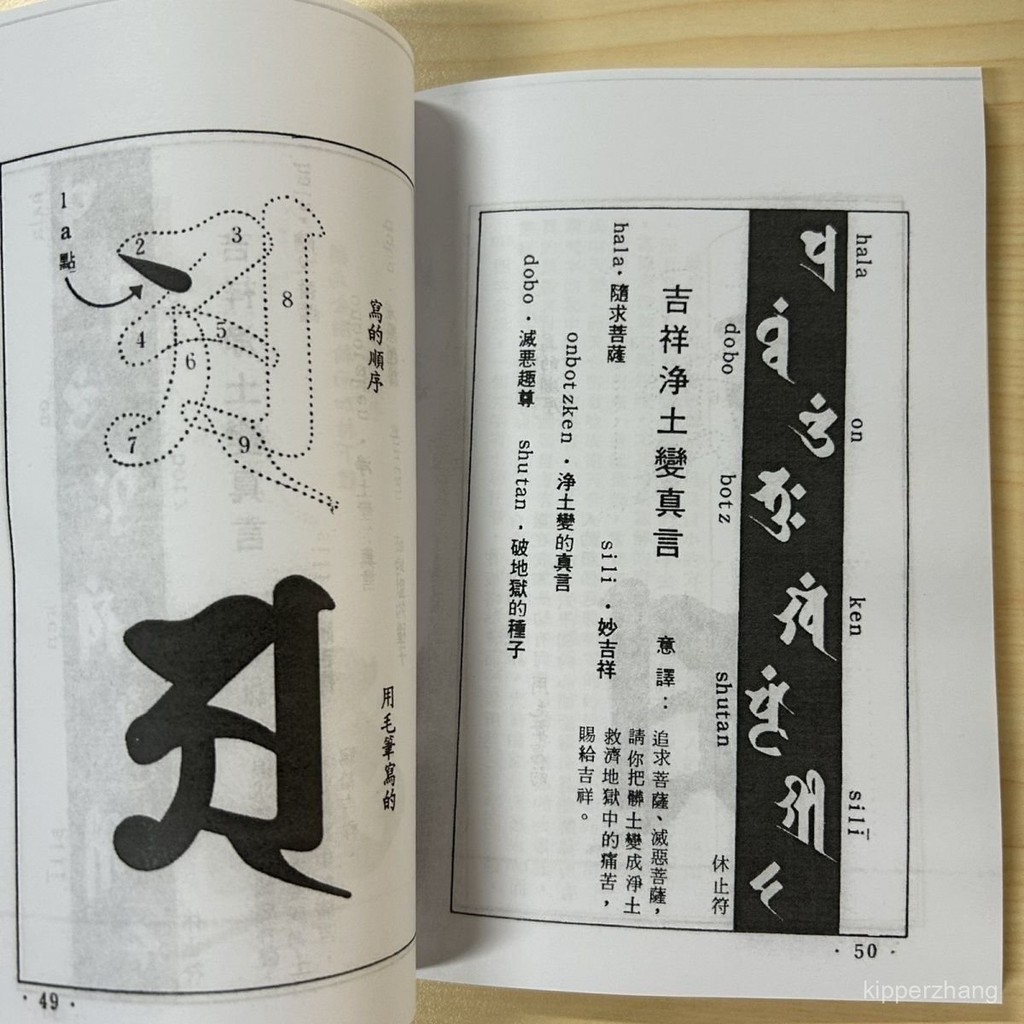 1
a
點
2
3
4
5
6
7
8
9
寫的順序
用毛筆寫的
· 49 ·
hala
on
ken
silī
dobo
botz
shutan
休止符
吉祥浄土變真言
意譯：
追求菩薩、滅惡菩薩，
請你把髒土變成淨土
救濟地獄中的痛苦，
賜給吉祥。
hala·隨求菩薩
sili ·妙吉祥
onbotzken·浄土變的真言
dobo·滅悪趣尊
shutan·破地獄的種子
· 50 ·
kipperzhang